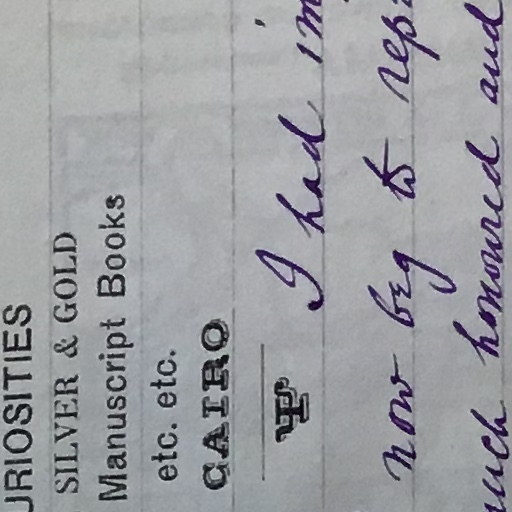 URIOSITIES
SILVER & GOLD
Manuscript Books
etc. etc.
CAIRO
I had im
now beg to rep
much honoured and